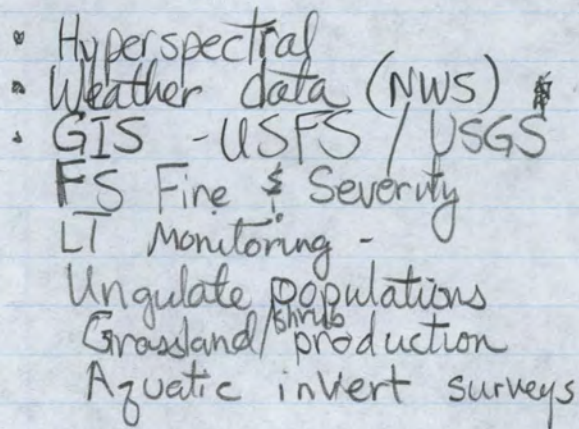 • Hyperspectral
• Weather data (NWS)
• GIS - USFS / USGS
FS Fire & Severity
LT Monitoring -
Ungulate populations
Grassland/shrub production
Aquatic invert surveys